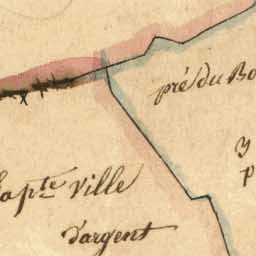 pré du Bo
y
p
la pte Ville
d'argent